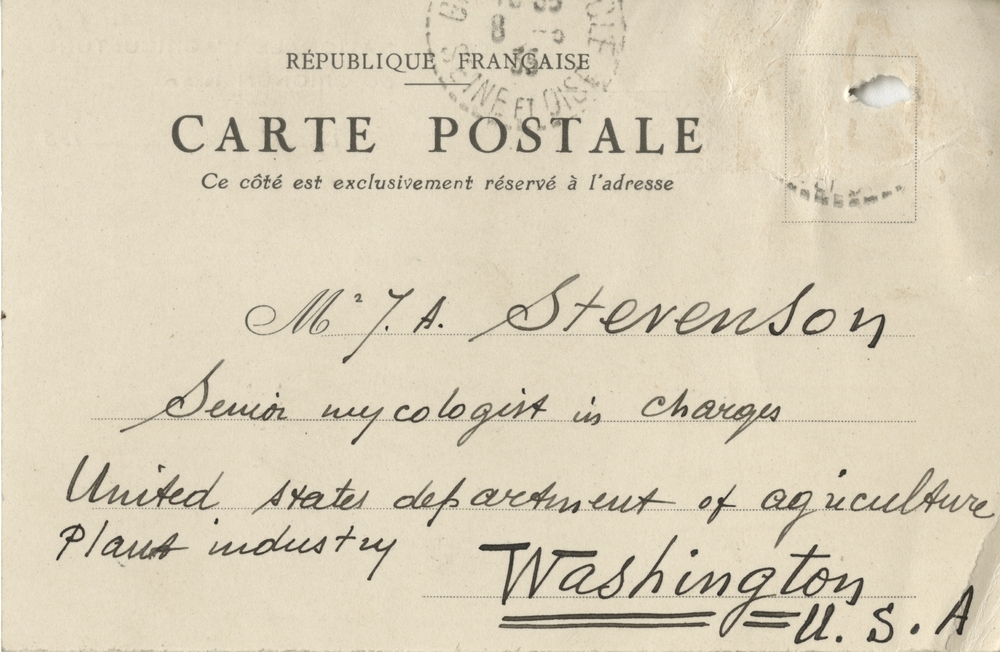 35
8
35
SEINE ET OISE
RÉPUBLIQUE FRANÇAISE
CARTE POSTALE
Ce côté est exclusivement réservé à l'adresse
Mr J. A. Stevenson
Senior mycologist in charges
United states department of agriculture
Plant industry
Washington
U. S. A